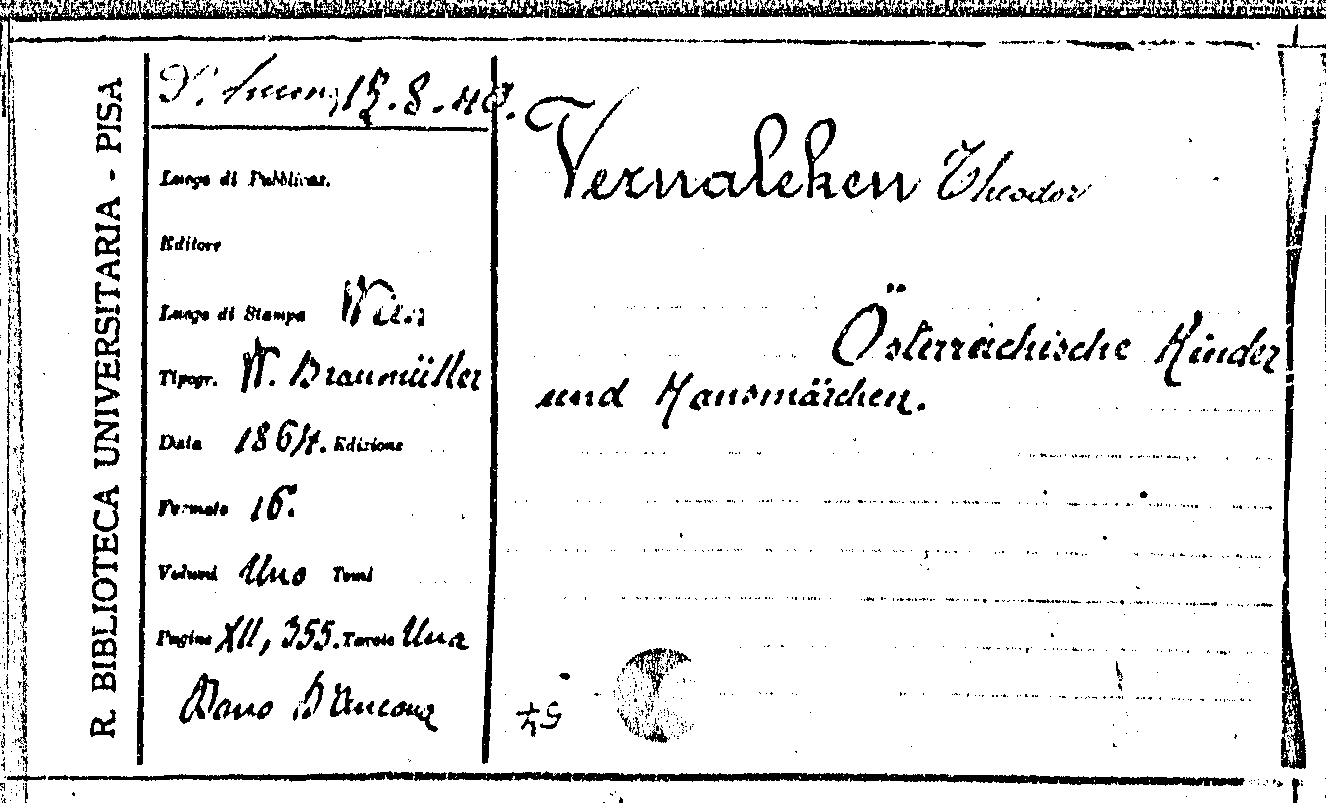 R. BIBLIOTECA UNIVERSITARIA - PISA
D'. 15.8.40.
Luogo di Pubblicaz.
Editore
Luogo di Stampa Wien
Tipogr. W. Braumüller
Data 1864. Edizione
Formato 16.
Volumi Uno Tomi
Pagine XII, 355. Tavole Una
Dono D'Ancona
Vernaleken Theodor
Österreichische Kinder
und Hausmärchen.